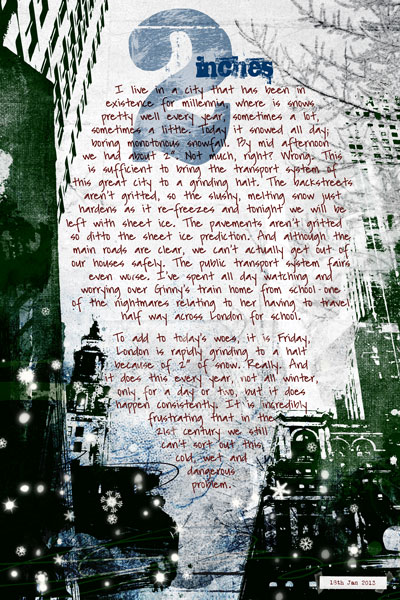 2
inches
I live in a city that has been in
existence for millennia, where is snows
pretty well every year, sometimes a lot,
sometimes a little. Today it snowed all day;
boring monotonous snowfall. By mid afternoon
we had about 2". Not much, right? Wrong. This
is sufficient to bring the transport system of
this great city to a grinding halt. The backstreets
aren't gritted, so the slushy, melting snow just
hardens as it re-freezes and tonight we will be
left with sheet ice. The pavements aren't gritted
so ditto the sheet ice prediction. And although the
main roads are clear, we can't actually get out of
our houses safely. The public transport system fairs
even worse. I've spent all day watching and
worrying over Ginny's train home from school - one
of the nightmares relating to her having to travel
half way across London for school.
To add to today's woes, it is Friday.
London is rapidly grinding to a halt
because of 2" of snow. Really. And
it does this every year, not all winter,
only for a day or two, but it does
happen consistently. It is incredibly
frustrating that in the
21st century we still
can't sort out this
cold, wet and
dangerous
problem.
18th Jan 2013